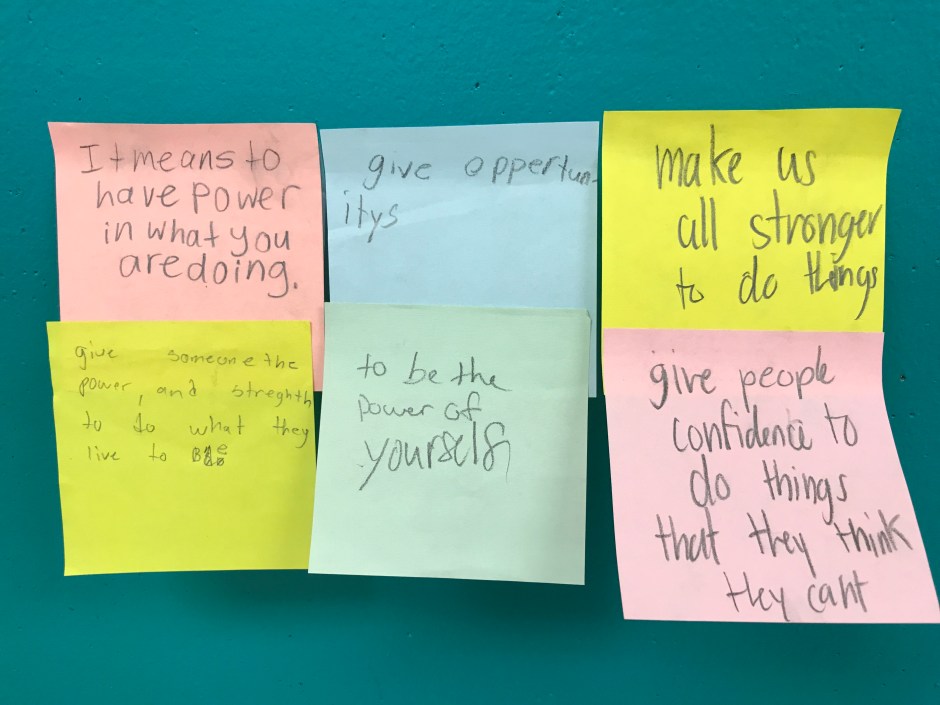 It means to
have power
in what you
are doing.
give oppertun-
itys
make us
all stronger
to do things
give someone the
power, and streghth
to do what they
live to
to be the
power of
yourself
give people
confidence to
do things
that they think
they cant